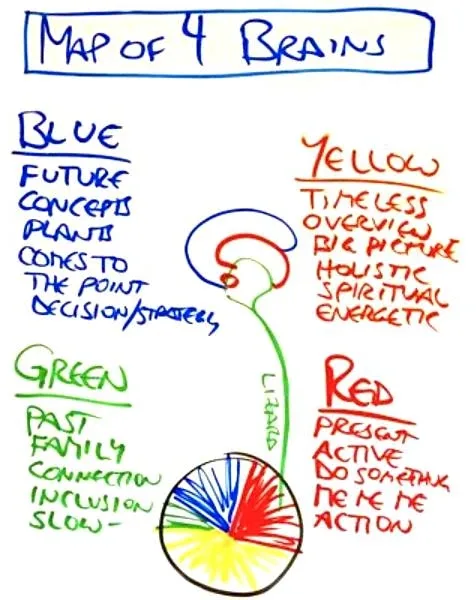 MAP OF 4 BRAINS
BLUE
FUTURE
CONCEPTS
PLANTS
COMES TO
THE POINT
DECISION/STRATEGY
YELLOW
TIMELESS
OVERVIEW
BIG PICTURE
HOLISTIC
SPIRITUAL
ENERGETIC
GREEN
PAST
FAMILY
CONNECTION
INCLUSION
SLOW-
LIZARD
RED
PRESENT
ACTIVE
DO SOMETHING
ME ME ME
ACTION